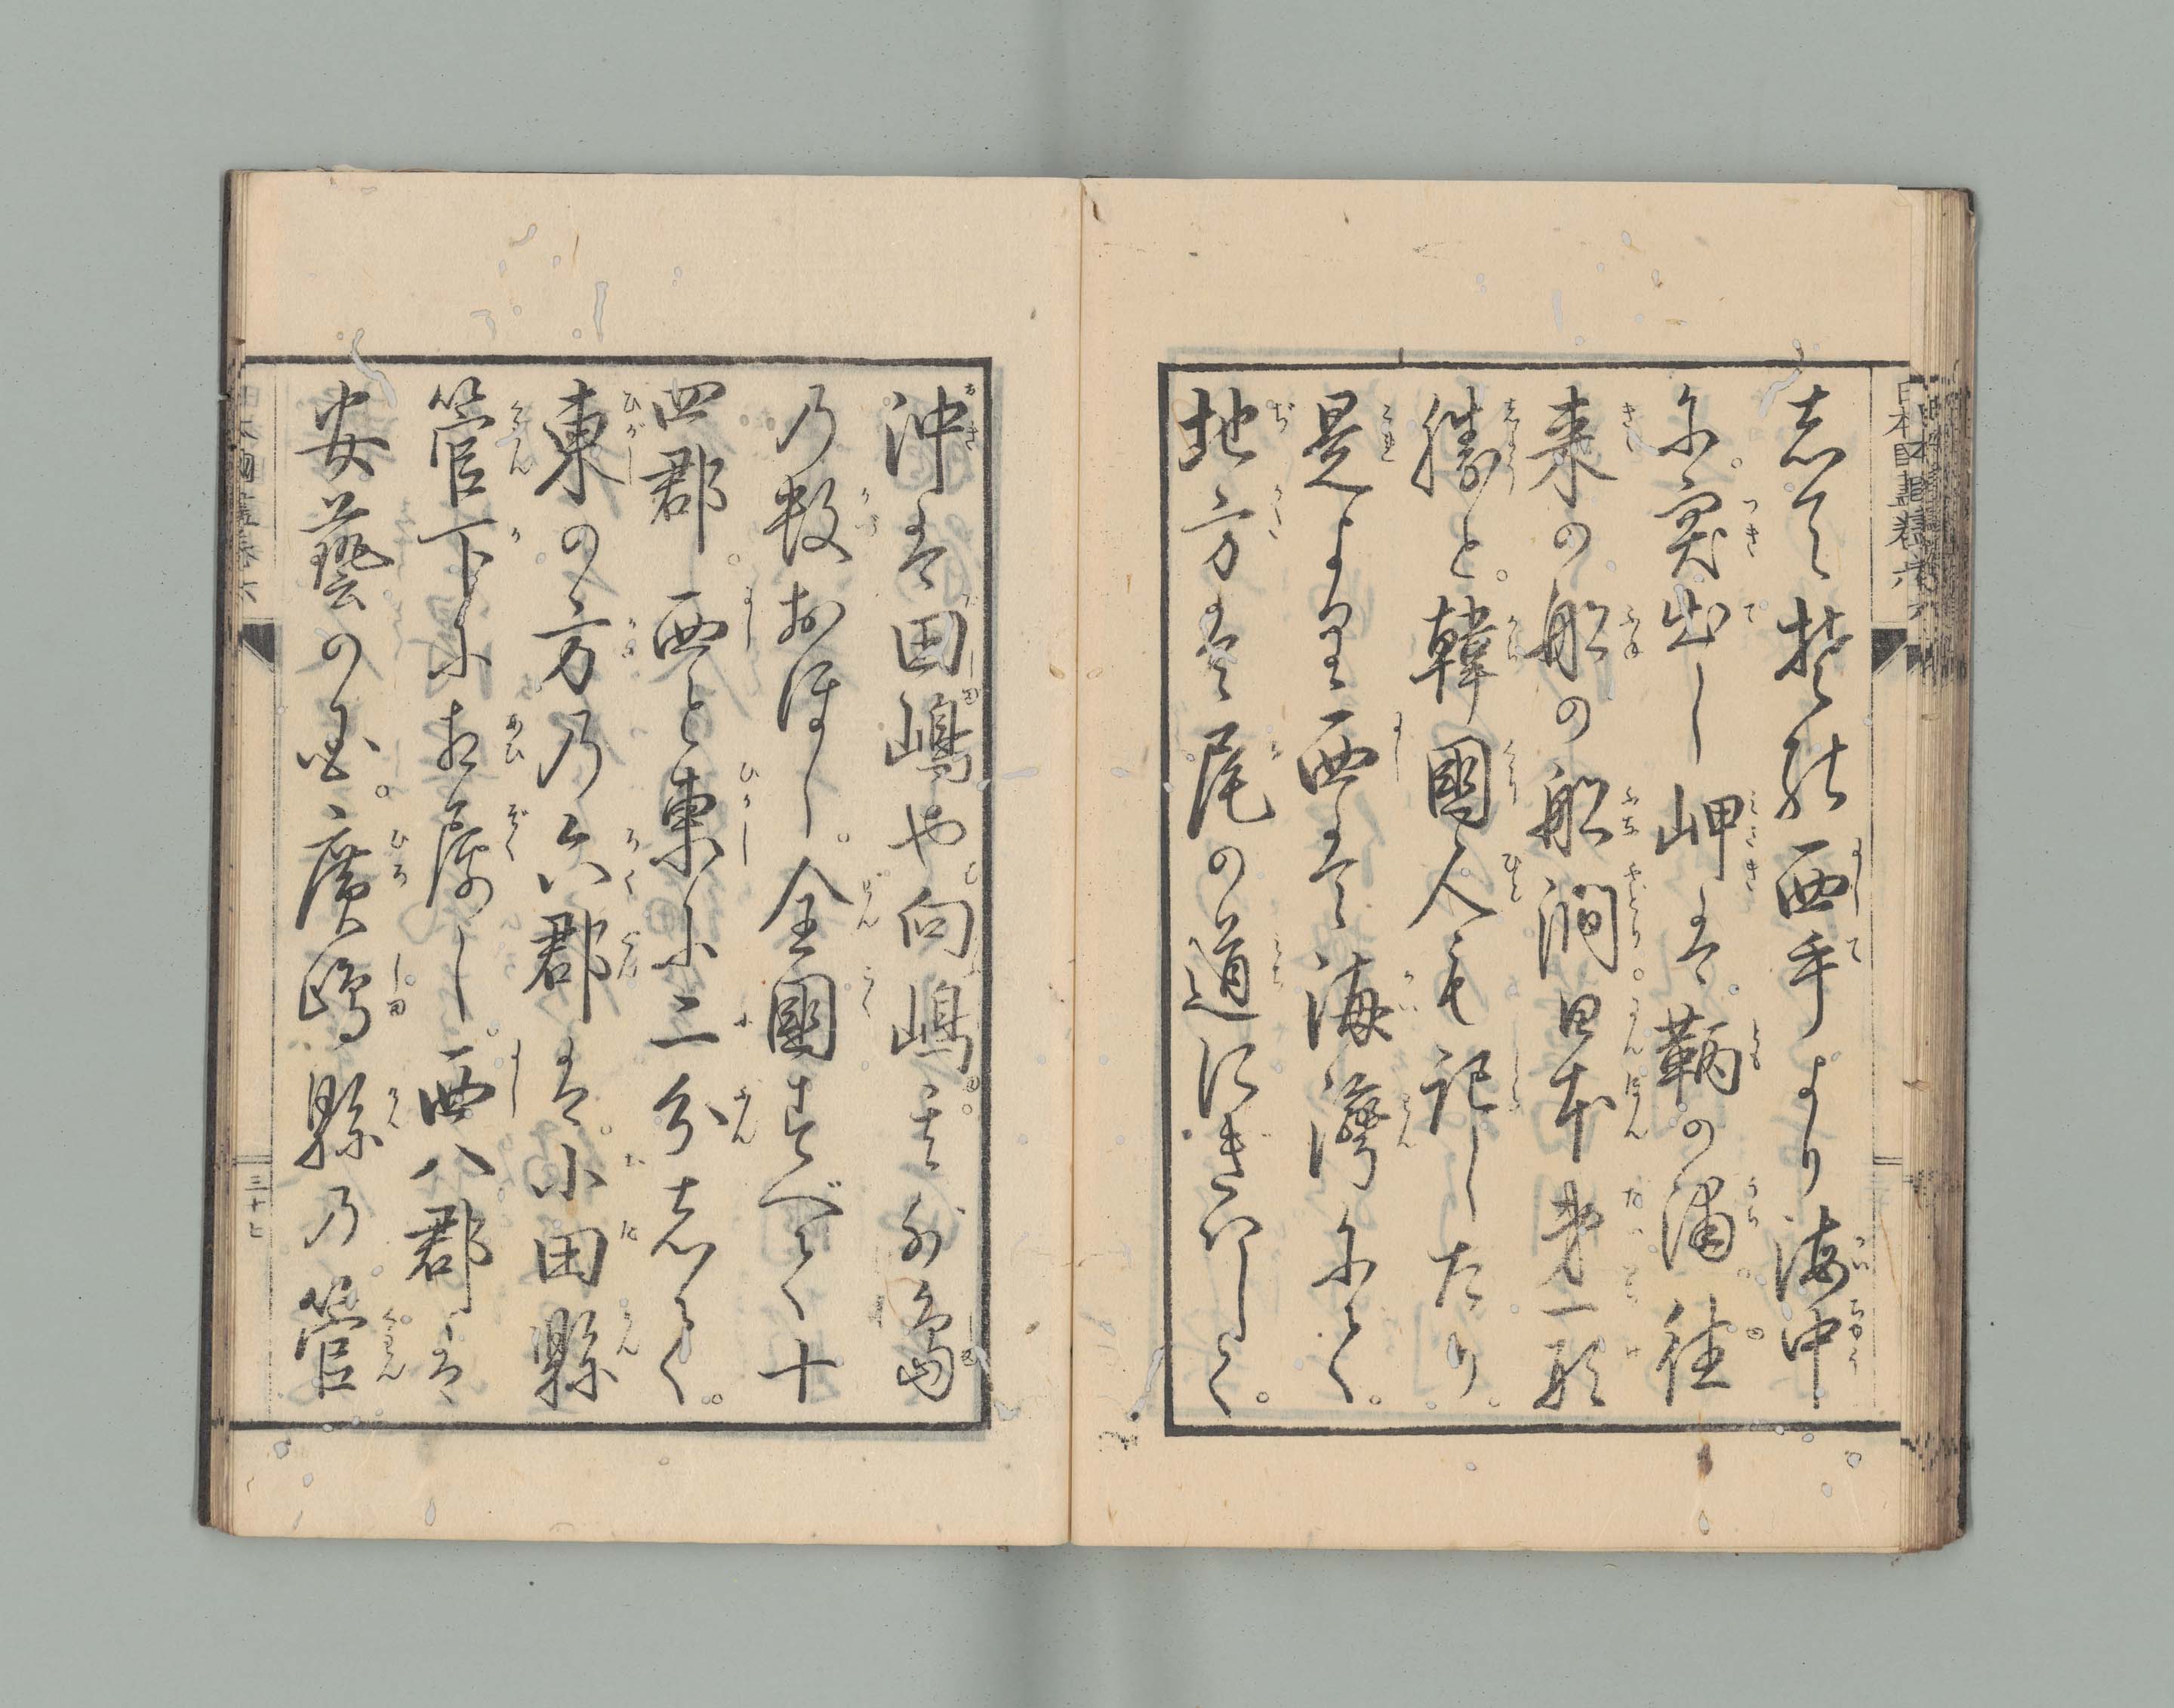 志て其が西手より海中
尓突出し岬は鞆の浦往
来の船の船澗日本第一形
勝と韓國人も記したり
是より西は海湾尓て
地方は尾の道にぎハしく
沖は田嶋や向嶋其外島
乃数おほし全國すべて十
四郡西と東に二分志て
東の方乃六郡は小田縣
管下に相属し西八郡は
安藝の国廣嶋縣乃管
三十七